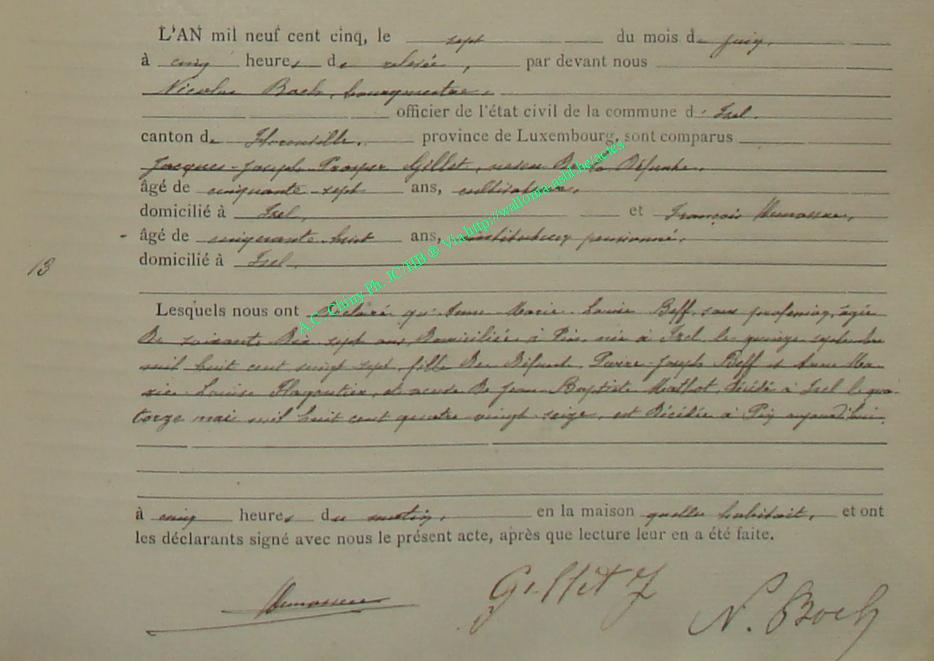 L'AN mil neuf cent cinq, le sept du mois de juin,
à cinq heures de relevée, par devant nous
Nicolas Boch, bourgmestre,
officier de l'état civil de la commune d' Izel.
canton de Florenville, province de Luxembourg, sont comparus
Jacques-Joseph-Prosper Gillet, neveu De la Défunte,
âgé de cinquante-sept ans, cultivateur,
domicilié à Izel, et François
âgé de cinquante-huit ans, instituteur pensionné,
domicilié à Izel.
13
Lesquels nous ont déclaré qu' Anne-Marie-Louise Beff, sans profession, âgée
De soixante Dix-sept ans, Domiciliée à Pin, née à Izel le quinze septembre
mil huit cent vingt-sept, fille Des Défunts Pierre-Joseph Beff et Anne Ma-
rie-Louise et veuve De Jean-Baptiste décédé à Izel le qua-
torze mai mil huit cent quatre-vingt-seize, est Décédée à Pin aujourd'hui
à cinq heures du matin, en la maison qu'elle habitait, et ont
les déclarants signé avec nous le présent acte, après que lecture leur en a été faite.
Gillet J
N. Boch
A.C. Chiny Ph. JC/HB ® Via http://wallonia-asbl.be/actes